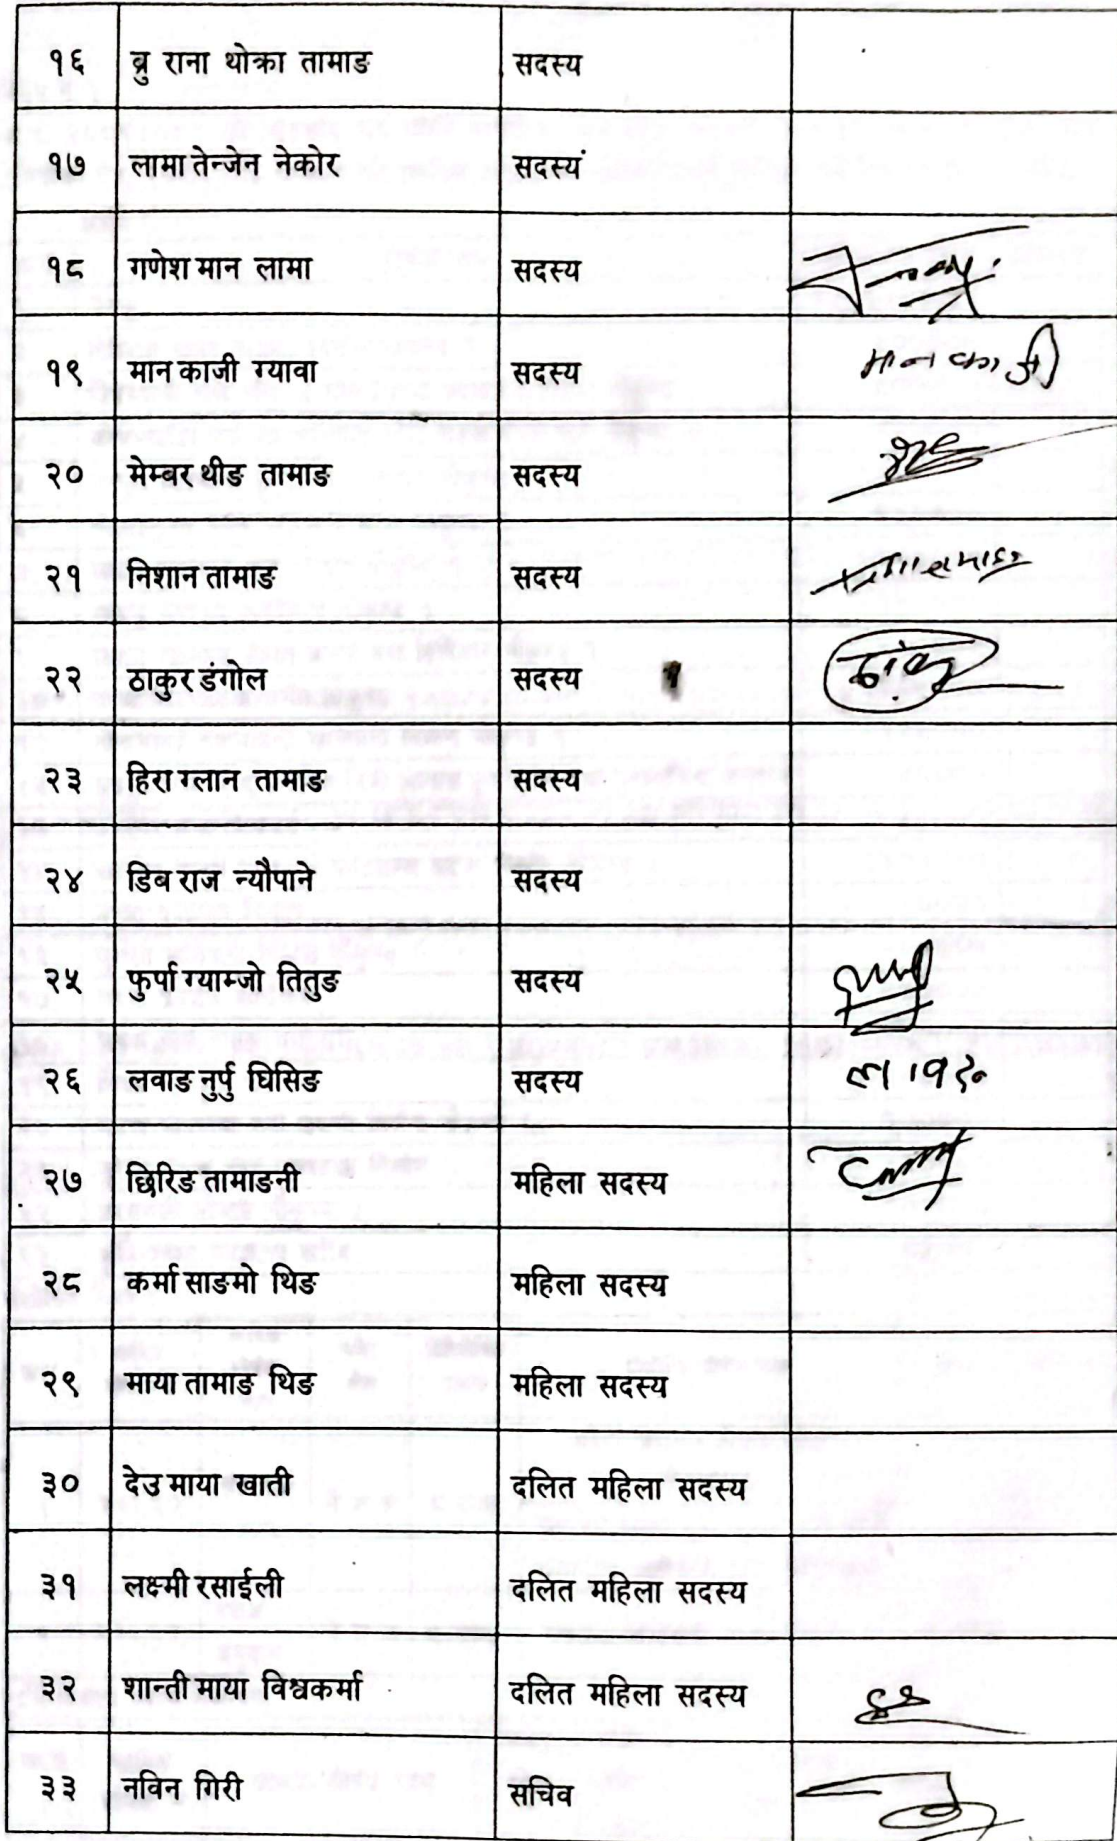 १६ ब्रु राना थोक्रा तामाङ सदस्य
१७ लामा तेन्जेन नेकोर सदस्य
१८ गणेश मान लामा सदस्य
१९ मान काजी ग्यावा सदस्य मान काजी
२० मेम्बर थीङ तामाङ सदस्य
२१ निशान तामाङ सदस्य
२२ ठाकुर डंगोल सदस्य
२३ हिरा ग्लान तामाङ सदस्य
२४ डिब राज न्यौपाने सदस्य
२५ फुर्पा ग्याम्जो तितुङ सदस्य
२६ लवाङ नुर्पु घिसिङ सदस्य
२७ छिरिङ तामाङनी महिला सदस्य
२८ कर्मा साङमो थिङ महिला सदस्य
२९ माया तामाङ थिङ महिला सदस्य
३० देउ माया खाती दलित महिला सदस्य
३१ लक्ष्मी रसाईली दलित महिला सदस्य
३२ शान्ती माया विश्वकर्मा दलित महिला सदस्य
३३ नविन गिरी सचिव